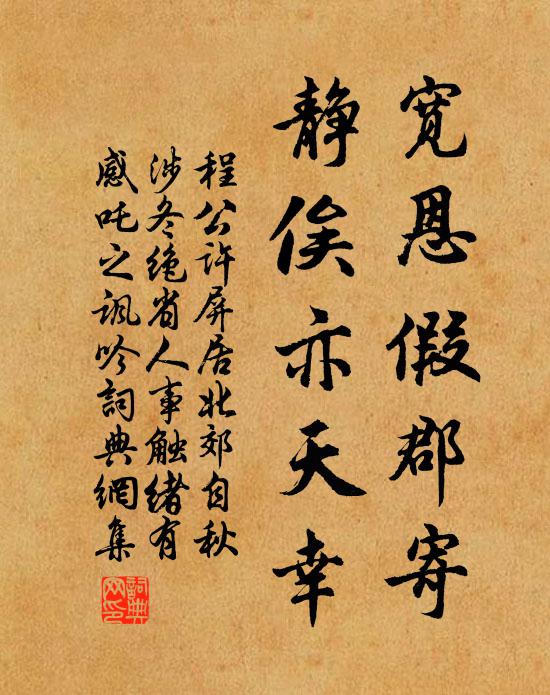 宽恩假郡寄
静俟亦天幸
程公许屏居北郊自秋
涉冬绝省人事触绪有
感吒之讽吟詞典網集
詞典網印